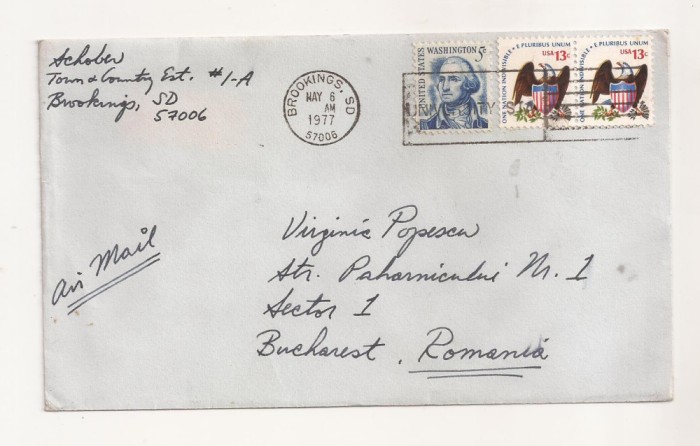 Schober
Town & Country Est. #1-A
Brookings, SD
57006
BROOKINGS, SD
MAY 6
AM
1977
57006
WASHINGTON 5c
UNITED STATES
E PLURIBUS UNUM
USA 13c
ONE NATION INDIVISIBLE
E PLURIBUS UNUM
USA 13c
ONE NATION INDIVISIBLE
Air Mail
Virginia Popescu
Str. Paharnicului Nr. 1
Sector 1
Bucharest, Romania